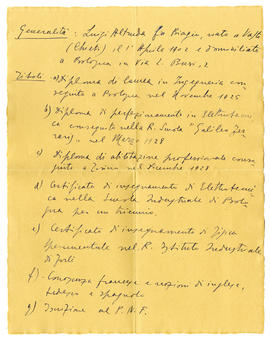 Generalità: Luigi Altmida fu Biagio, nato a Vasto
(Chieti) il 1° Aprile 1902 e domiciliato
a Bologna in Via L. Busi, 2
Titoli - a) Diploma di laurea in Ingegneria con-
seguito a Bologna nel Novembre 1925
b) Diploma di perfezionamento in Elettrotecni-
ca conseguito nella R. Scuola "Galileo Fer-
raris" nel Marzo 1928
c) Diploma di abilitazione professionale conse-
guito a Torino nel Dicembre 1928
d) Certificato di insegnamento di Elettrotecni-
ca nella Scuola Industriale di Bolo-
gna per un triennio.
e) Certificato di insegnamento di Fisica
sperimentale nel R. Istituto Industriale
di Forlì
f) - Conoscenza francese e nozioni di inglese,
tedesco e spagnolo
g) Iscrizione al P.N.F.